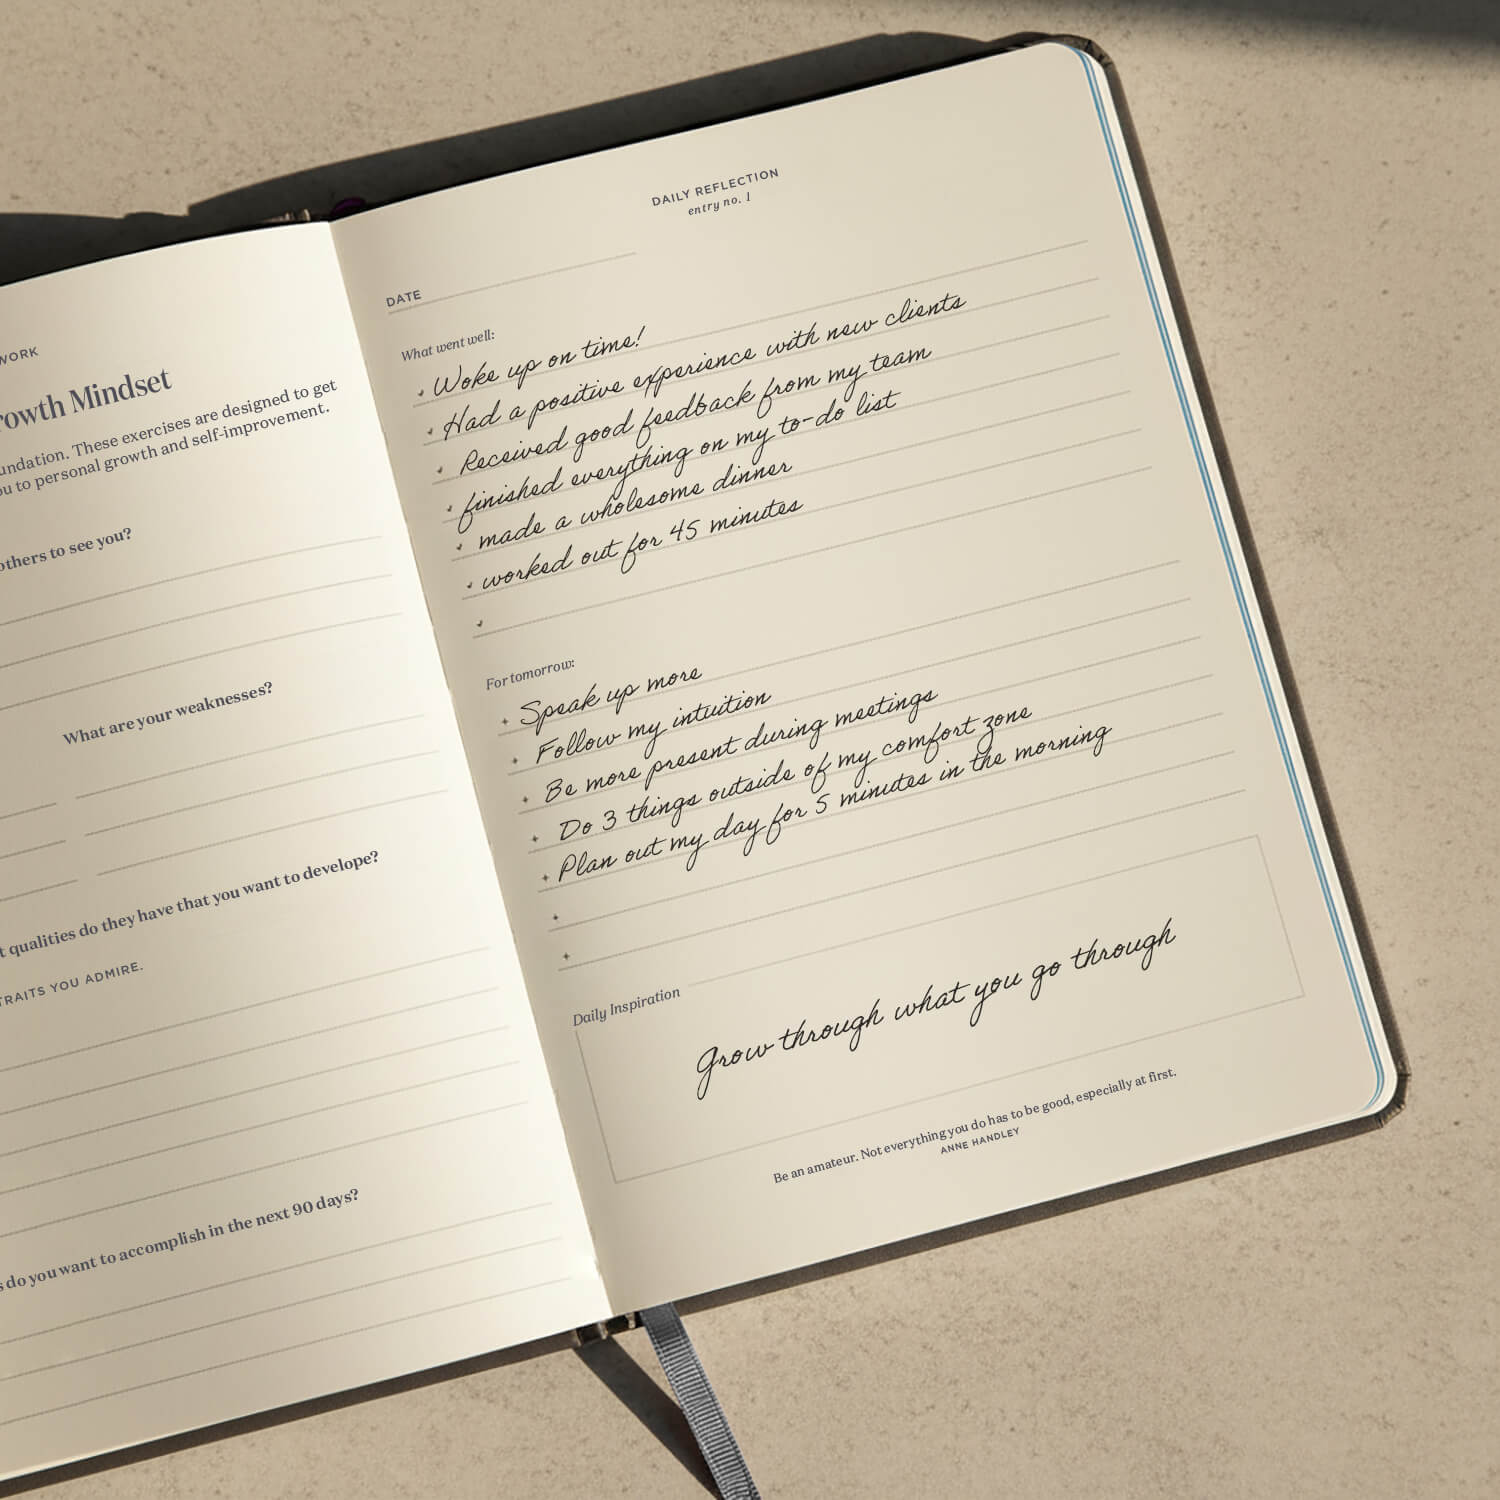 WORK
Growth Mindset
These exercises are designed to get
to personal growth and self-improvement.
others to see you?
What are your weaknesses?
qualities do they have that you want to develope?
TRAITS YOU ADMIRE.
do you want to accomplish in the next 90 days?
DAILY REFLECTION
entry no. 1
DATE
What went well:
Woke up on time!
Had a positive experience with new clients
Received good feedback from my team
finished everything on my to-do list
made a wholesome dinner
worked out for 45 minutes
For tomorrow:
Speak up more
Follow my intuition
Be more present during meetings
Do 3 things outside of my comfort zone
Plan out my day for 5 minutes in the morning
Daily Inspiration
Grow through what you go through
Be an amateur. Not everything you do has to be good, especially at first.
ANNE HANDLEY